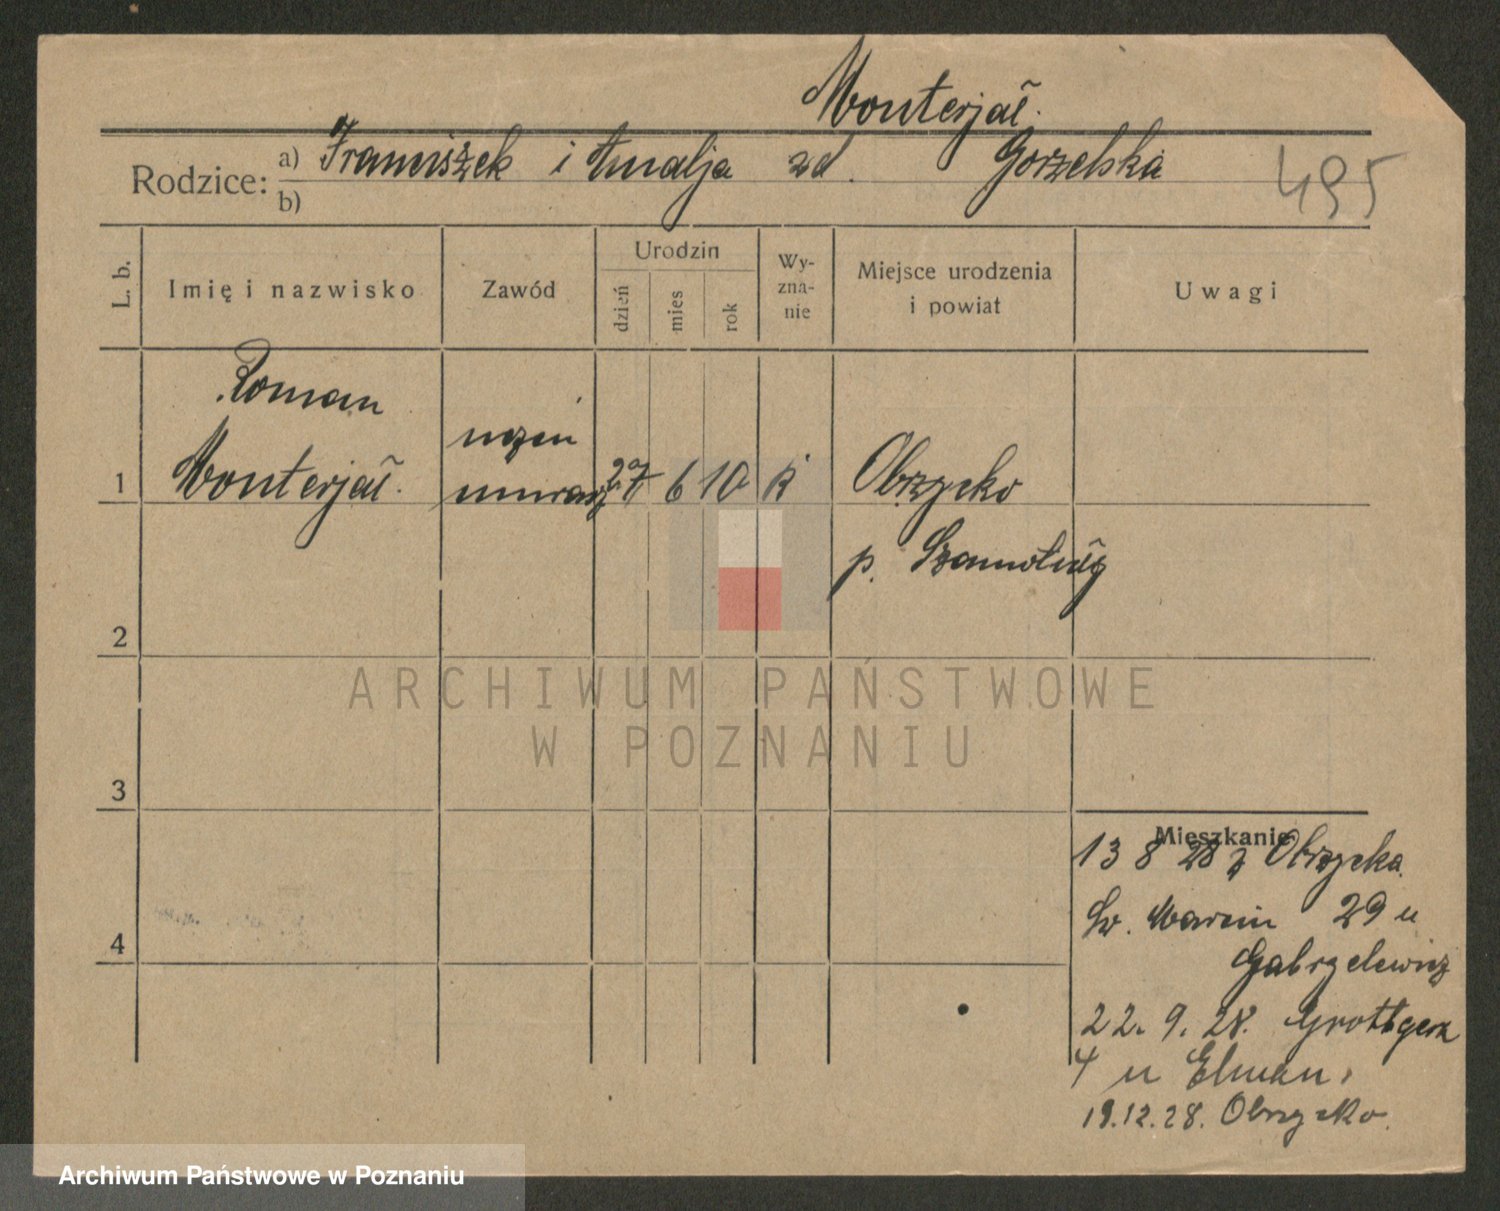 Monterjał.
Rodzice: a) Franciszek i Amalja zd. Gorzelska
b)
495
L. b.
Imię i nazwisko
Zawód
Urodzin
dzień
mies
rok
Wy-
zna-
nie
Miejsce urodzenia
i powiat
Uwagi
Roman
1 Monterjał.
uczeń
murarz
27 6 10 k
Obrzycko
p. Szamotuły
2
ARCHIWUM PAŃSTWOWE
W POZNANIU
3
Mieszkanie
13 8 28 z Obrzycka
Św. Marcin 29 u
Gabryelewicz
4
22. 9. 28. Grottgera
4 u Elman.
19.12.28. Obrzycko.
Archiwum Państwowe w Poznaniu